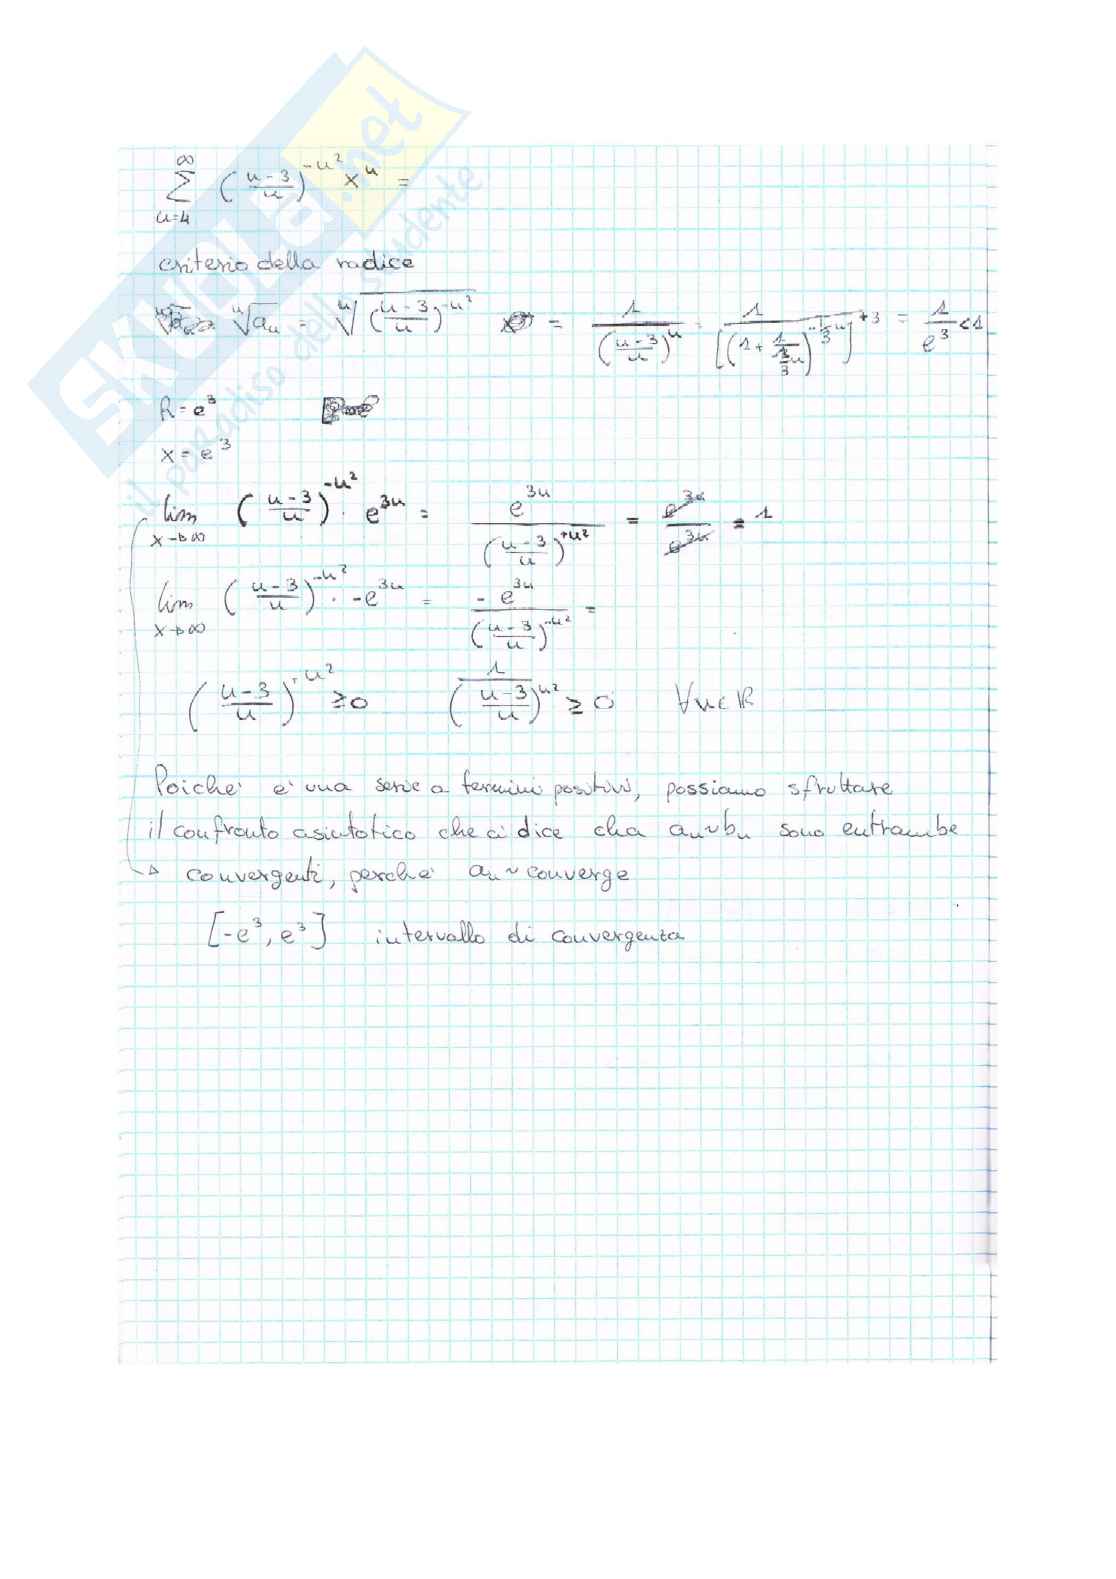 SKUOLA.net
il paradiso dello studente
∞
∑ ((n-3)/n)^(-n²) x^n =
n=4
criterio della radice
ⁿ√aₙ = ⁿ√((n-3)/n)^(-n²) = 1/((n-3)/n)^n = 1/[(1+1/(-1/3 n))^(-1/3 n)]^(+3) = 1/e³ < 1
R = e³
x = e³
lim x→∞ ((n-3)/n)^(-n²) · e^(3n) = e^(3n)/((n-3)/n)^(+n²) = e^(3n)/e^(3n) = 1
lim x→∞ ((n-3)/n)^(-n²) · -e^(3n) = -e^(3n)/((n-3)/n)^(-n²) =
((n-3)/n)^(-n²) ≥ 0 1/((n-3)/n)^(n²) ≥ 0 ∀n∈ℝ
Poiche' e' una serie a termini positivi, possiamo sfruttare
il confronto asintotico che ci dice cha aₙ~bₙ sono entrambe
→ convergenti, perche' aₙ~converge
[-e³, e³] intervallo di convergenza